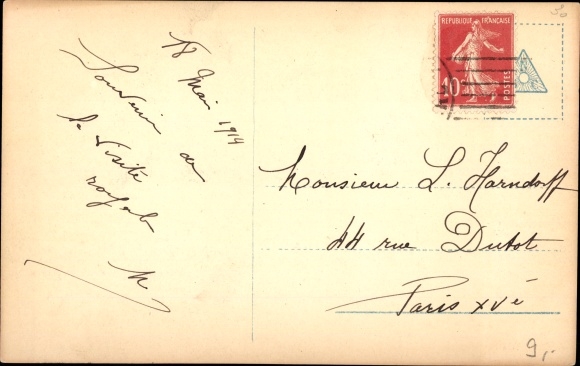 18 Mai 1914
Souvenir de
la visite
royale
M
RÉPUBLIQUE FRANÇAISE
10c
POSTES
Monsieur L. Harndorff
44 rue Dutot
Paris XVè
9,-